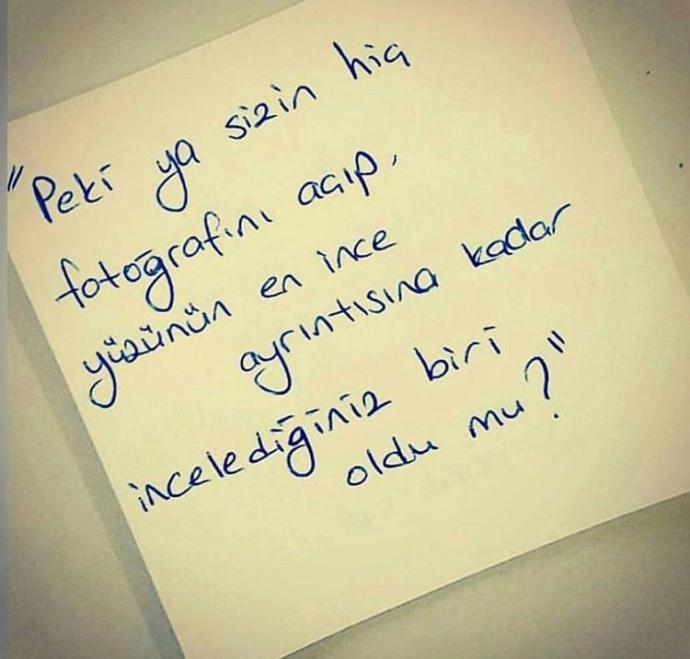 "Peki ya sizin hiç
fotoğrafını açıp,
yüzünün en ince
ayrıntısına kadar
incelediğiniz biri
oldu mu?"